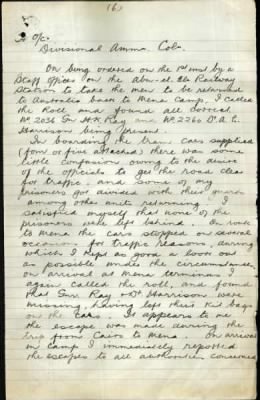 (6)
To O/c.
Divisional Amma. Cola.
On being ordered on the 1st inst by a
Staff Officer on the Abu-el-Ela Railway
Station to take the men to be returned
to Australia back to Mena Camp, I called
the Roll and found all correct
No. 2036 Gnr H.K. Ray and No. 2266 D.A.C.
Harrison being present.
In boarding the tram cars supplied
(four or five attached) there was some
little confusion owing to the desire
of the officials to get the road clear
for traffic, and some of my
prisoners got divided with their guards
among other units returning. I
satisfied myself that none of the
prisoners were left behind. En route
to Mena the cars stopped on several
occasions for traffic reasons, during
which I kept as good a look out
as possible under the circumstances
on arrival at Mena terminus I
again called the roll, and found
that Gnr. Ray & Dr. Harrison were
missing, having left their kit bags
on the cars. It appears to me
the escape was made during the
trip from Cairo to Mena. On arrival
in Camp I immediately reported
the escapes to all authorities concerned